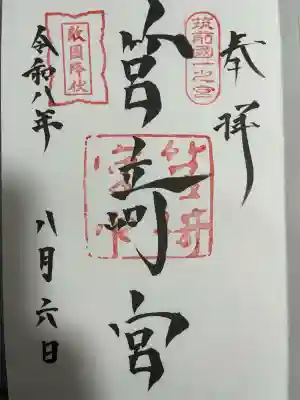 奉拝
筑前國一之宮
筥崎宮
敵國降伏
令和八年
八月六日